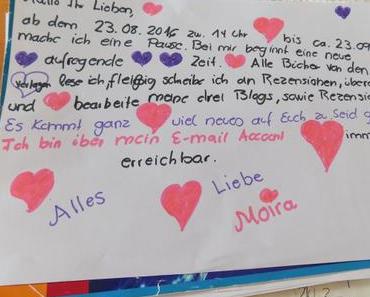 Hallo Ihr Lieben,
ab dem 23.08.2016 zu. 14 Uhr bis ca. 23.09
mache ich eine Pause. Bei mir beginnt eine neue
aufregende Zeit. Alle Bücher von den
Verlagen lese ich, fleißig schreibe ich an Rezensionen, über
und bearbeite meine drei Blogs, sowie Rezensio
Es kommt ganz viel neues auf Euch zu. Seid g
Ich bin über mein E-mail Accont imm
erreichbar.
Alles
Liebe
Moira